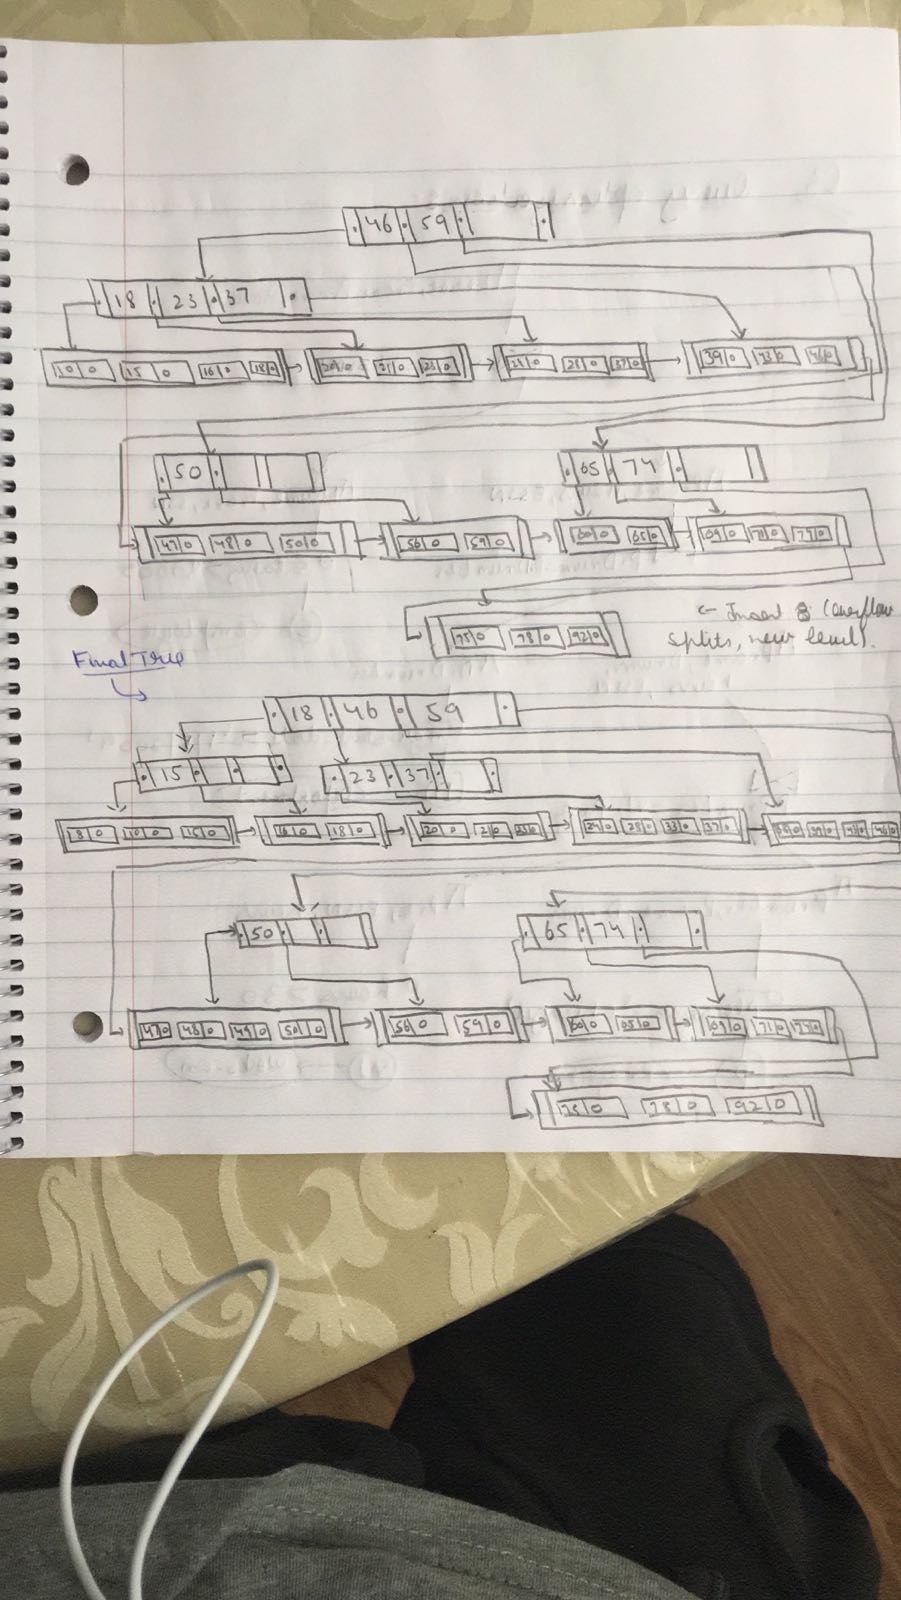 46 59
18 23 37
10 0 15 0 16 0 18 0 20 0 21 0 23 0 24 0 28 0 37 0 39 0 43 0 46 0
50 65 74
47 0 48 0 50 0 56 0 59 0 60 0 65 0 69 0 71 0 74 0
75 0 78 0 92 0
← Insert 8 (overflow
splits, new level).
Final Tree
18 46 59
15 23 37
8 0 10 0 15 0 16 0 18 0 20 0 21 0 23 0 24 0 28 0 33 0 37 0 39 0 43 0 46 0
50 65 74
47 0 48 0 49 0 50 0 56 0 59 0 60 0 65 0 69 0 71 0 74 0
75 0 78 0 92 0